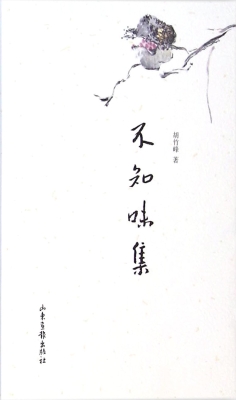 不知味集
胡竹峰 著
山东画报出版社